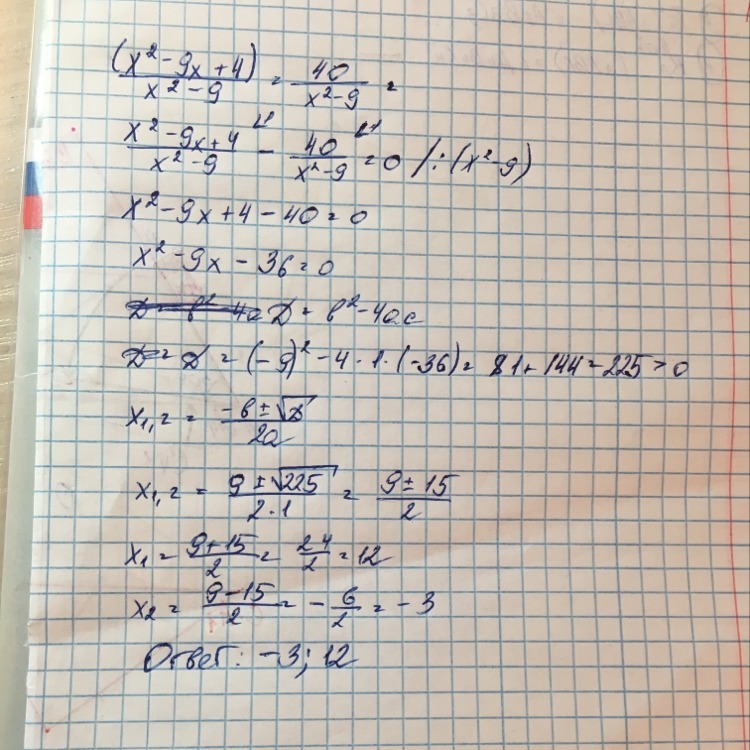 (x² - 9x + 4) / (x² - 9) = 40 / (x² - 9) =
(x² - 9x + 4) / (x² - 9) - 40 / (x² - 9) = 0 /: (x² - 9)
x² - 9x + 4 - 40 = 0
x² - 9x - 36 = 0
D = b² - 4ac
D = (-9)² - 4 · 1 · (-36) = 81 + 144 = 225 > 0
x1,2 = (-b ± √D) / 2a
x1,2 = (9 ± √225) / (2 · 1) = (9 ± 15) / 2
x1 = (9 + 15) / 2 = 24 / 2 = 12
x2 = (9 - 15) / 2 = - 6 / 2 = - 3
Ответ: -3; 12